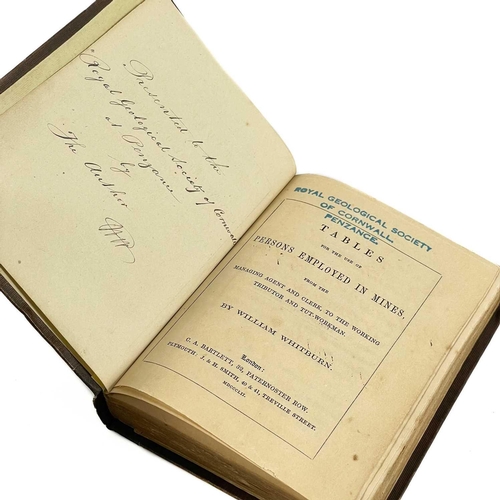 Presented to the
Royal Geological Society of Cornwall
at Penzance
by
The Author
ROYAL GEOLOGICAL SOCIETY
OF CORNWALL.
PENZANCE.
TABLES
FOR THE USE OF
PERSONS EMPLOYED IN MINES,
FROM THE
MANAGING AGENT AND CLERK, TO THE WORKING
TRIBUTOR AND TUT-WORKMAN.
BY WILLIAM WHITBURN.
London:
C. A. BARTLETT, 32, PATERNOSTER ROW.
PLYMOUTH, J. & H. SMITH, 40 & 41, TREVILLE STREET.
MDCCCLII.